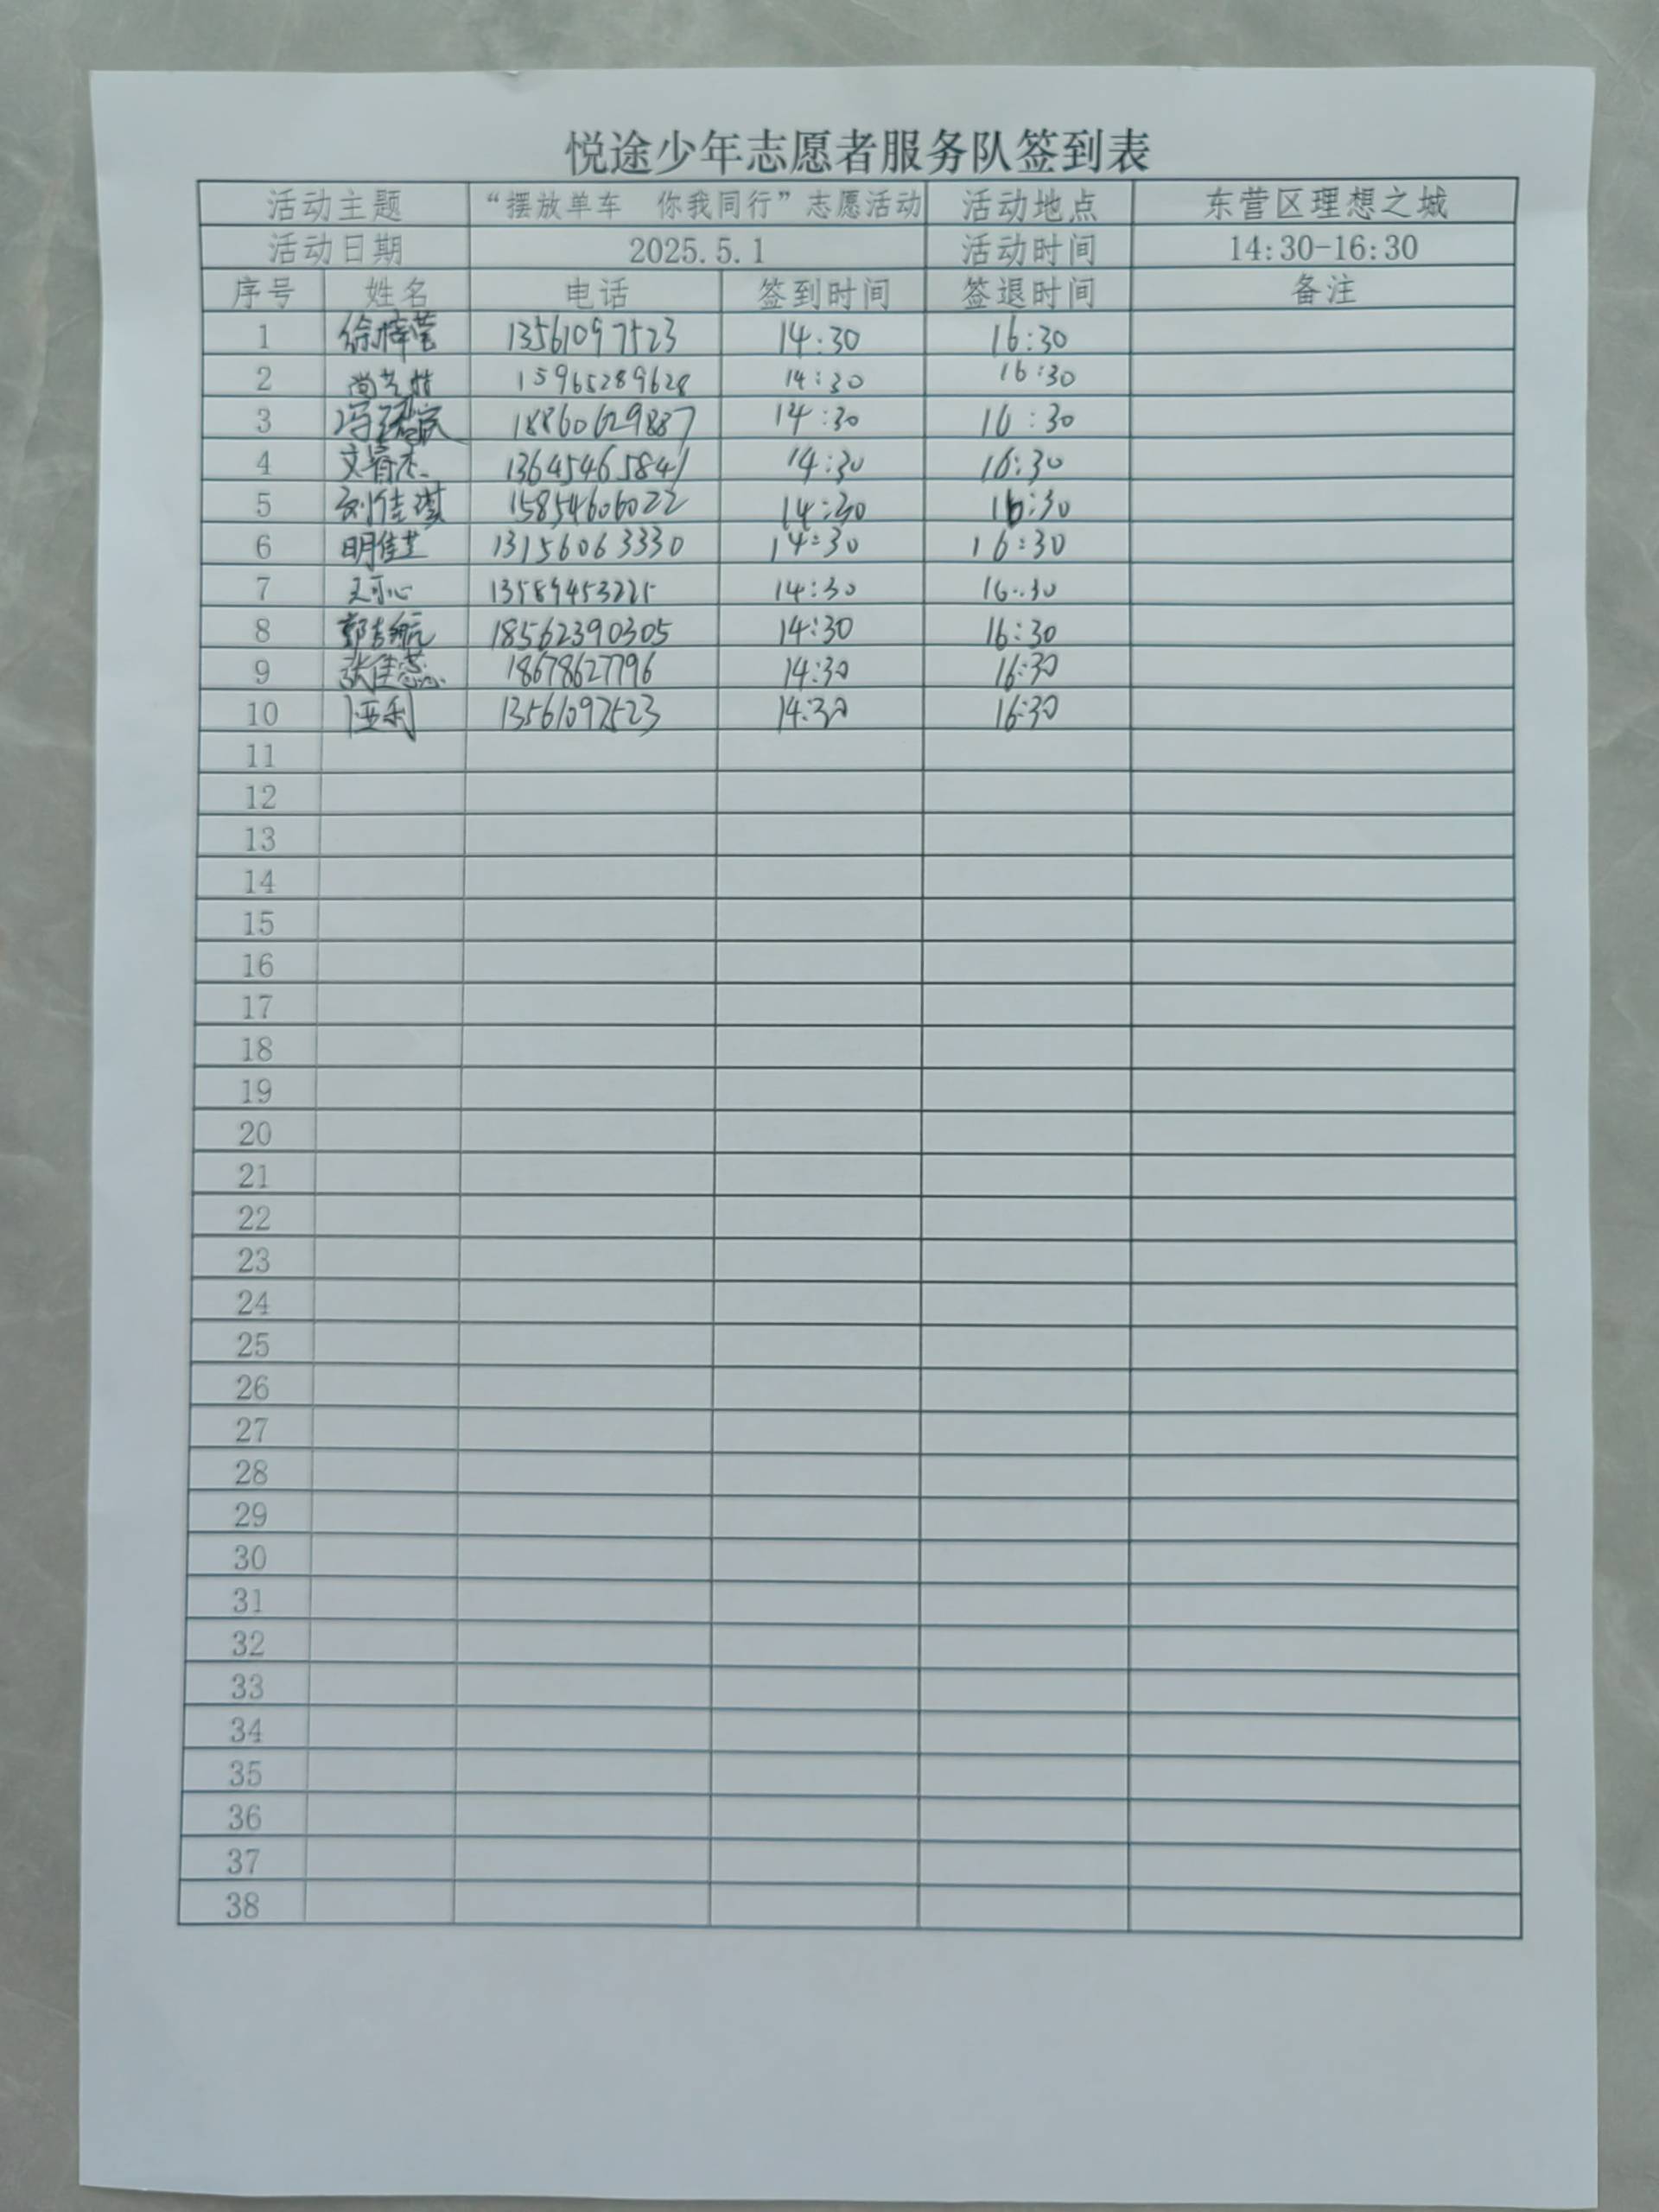 悦途少年志愿者服务队签到表
活动主题 “摆放单车 你我同行”志愿活动 活动地点 东营区理想之城
活动日期 2025.5.1 活动时间 14:30-16:30
序号 姓名 电话 签到时间 签退时间 备注
1 徐梓莹 13561097523 14:30 16:30
2 15965289628 14:30 16:30
3 18860629887 14:30 16:30
4 13645465841 14:30 16:30
5 刘佳琪 15854606022 14:30 16:30
6 明佳芝 13156063330 14:30 16:30
7 王可心 13589453225 14:30 16:30
8 郭吉航 18562390305 14:30 16:30
9 张佳蕊 18678627796 14:30 16:30
10 13561097523 14:30 16:30
11
12
13
14
15
16
17
18
19
20
21
22
23
24
25
26
27
28
29
30
31
32
33
34
35
36
37
38